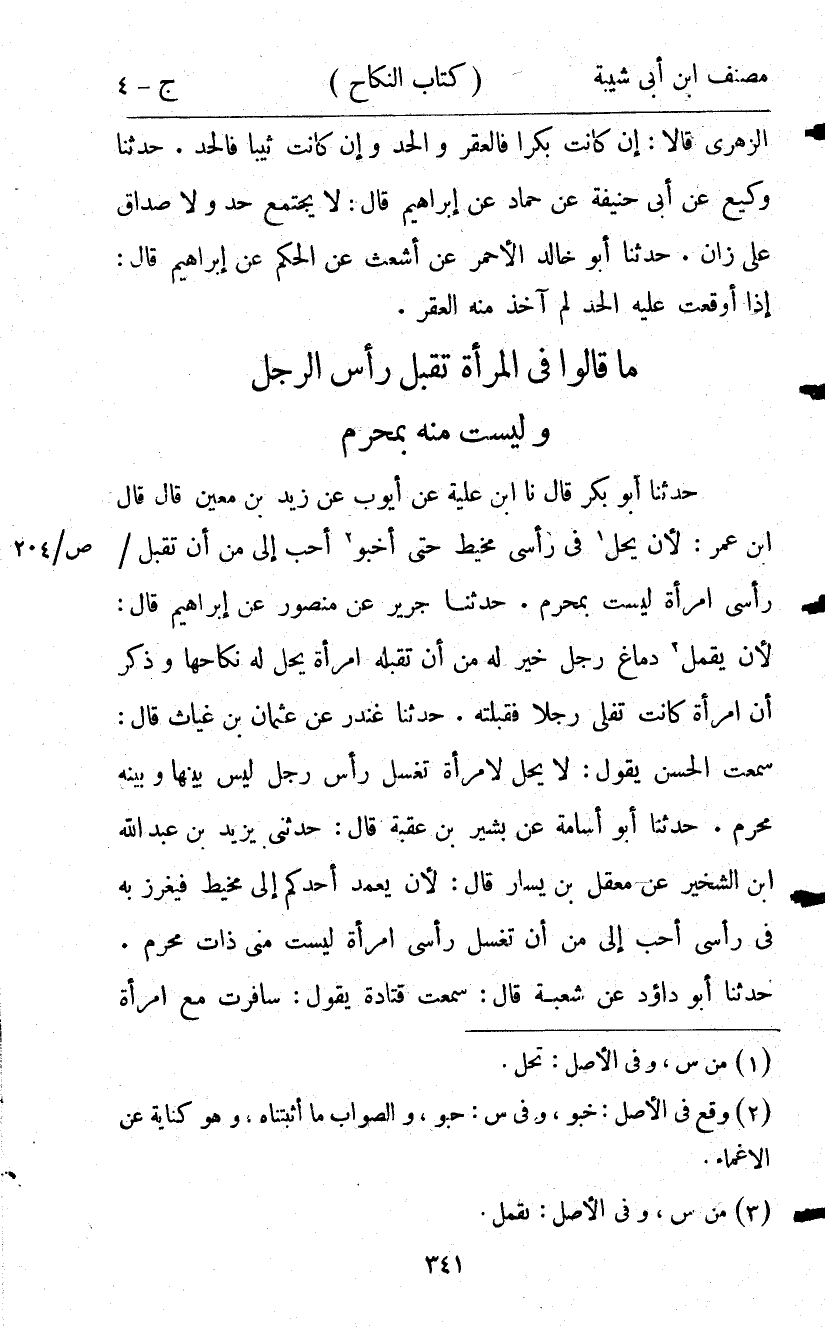 مصنف ابن أبى شيبة ( كتاب النكاح ) ج - ٤
الزهرى قالا : إن كانت بكرا فالعقر و الحد و إن كانت ثيبا فالحد . حدثنا
وكيع عن أبى حنيفة عن حماد عن إبراهيم قال : لا يجتمع حد و لا صداق
على زان . حدثنا أبو خالد الأحمر عن أشعث عن الحكم عن إبراهيم قال :
إذا أوقعت عليه الحد لم آخذ منه العقر .
ما قالوا فى المرأة تقبل رأس الرجل
و ليست منه بمحرم
حدثنا أبو بكر قال نا ابن علية عن أيوب عن زيد بن معين قال قال
ابن عمر : لأن يحل١ فى رأسى مخيط حتى أخبو٢ أحب إلى من أن تقبل / ص/٢٠٤
رأسى امرأة ليست بمحرم . حدثنا جرير عن منصور عن إبراهيم قال :
لأن يقمل٣ دماغ رجل خير له من أن تقبله امرأة يحل له نكاحها و ذكر
أن امرأة كانت تفلى رجلا فقبلته . حدثنا غندر عن عثمان بن غياث قال :
سمعت الحسن يقول : لا يحل لامرأة تغسل رأس رجل ليس بينها و بينه
محرم . حدثنا أبو أسامة عن بشير بن عقبة قال : حدثنى يزيد بن عبد الله
ابن الشخير عن معقل بن يسار قال : لأن يعمد أحدكم إلى مخيط فيغرز به
فى رأسى أحب إلى من أن تغسل رأسى امرأة ليست منى ذات محرم .
حدثنا أبو داؤد عن شعبة قال : سمعت قتادة يقول : سافرت مع امرأة
(١) من س ، و فى الأصل : تحل .
(٢) وقع فى الأصل : خبو ، و فى س : حبو ، و الصواب ما أثبتناه ، و هو كناية عن
الاغماء .
(٣) من س ، و فى الأصل : نقمل .
٣٤١